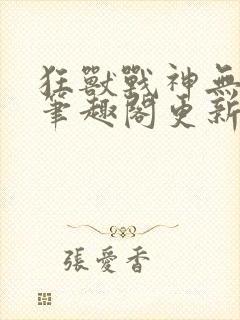 狂獸戰神無
筆趣閣更新
張愛香